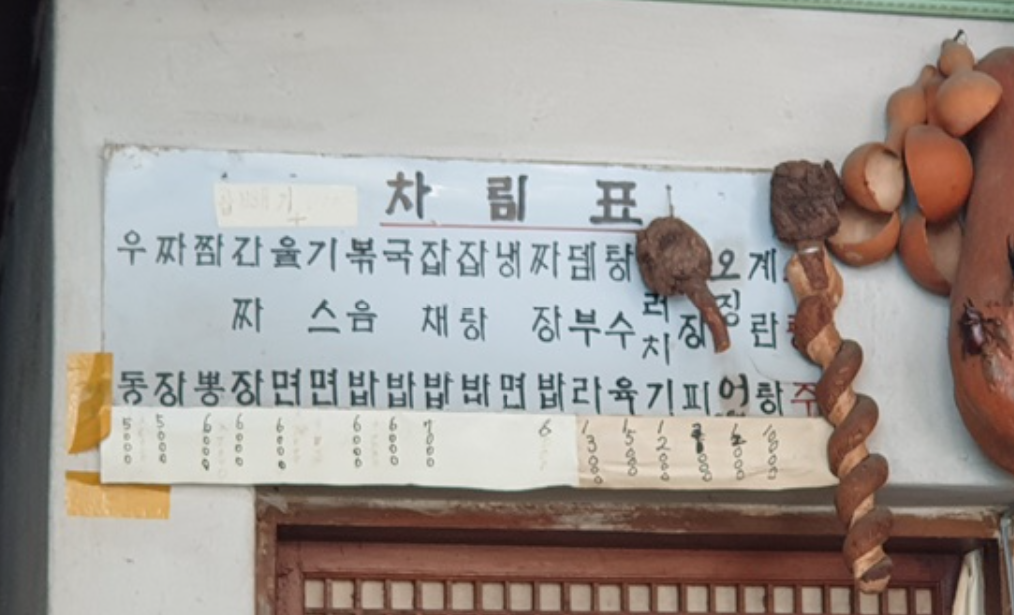 차림표
우동 5000
짜장 5000
짬뽕 6000
간짜장 6000
울면 6000
기스면
볶음밥 6000
국밥 6000
잡채밥 7000
잡탕밥
냉면
짜장밥 6
뎀부라 13000
탕수육 15000
러치기 12000
장피
오징어
계란탕
주